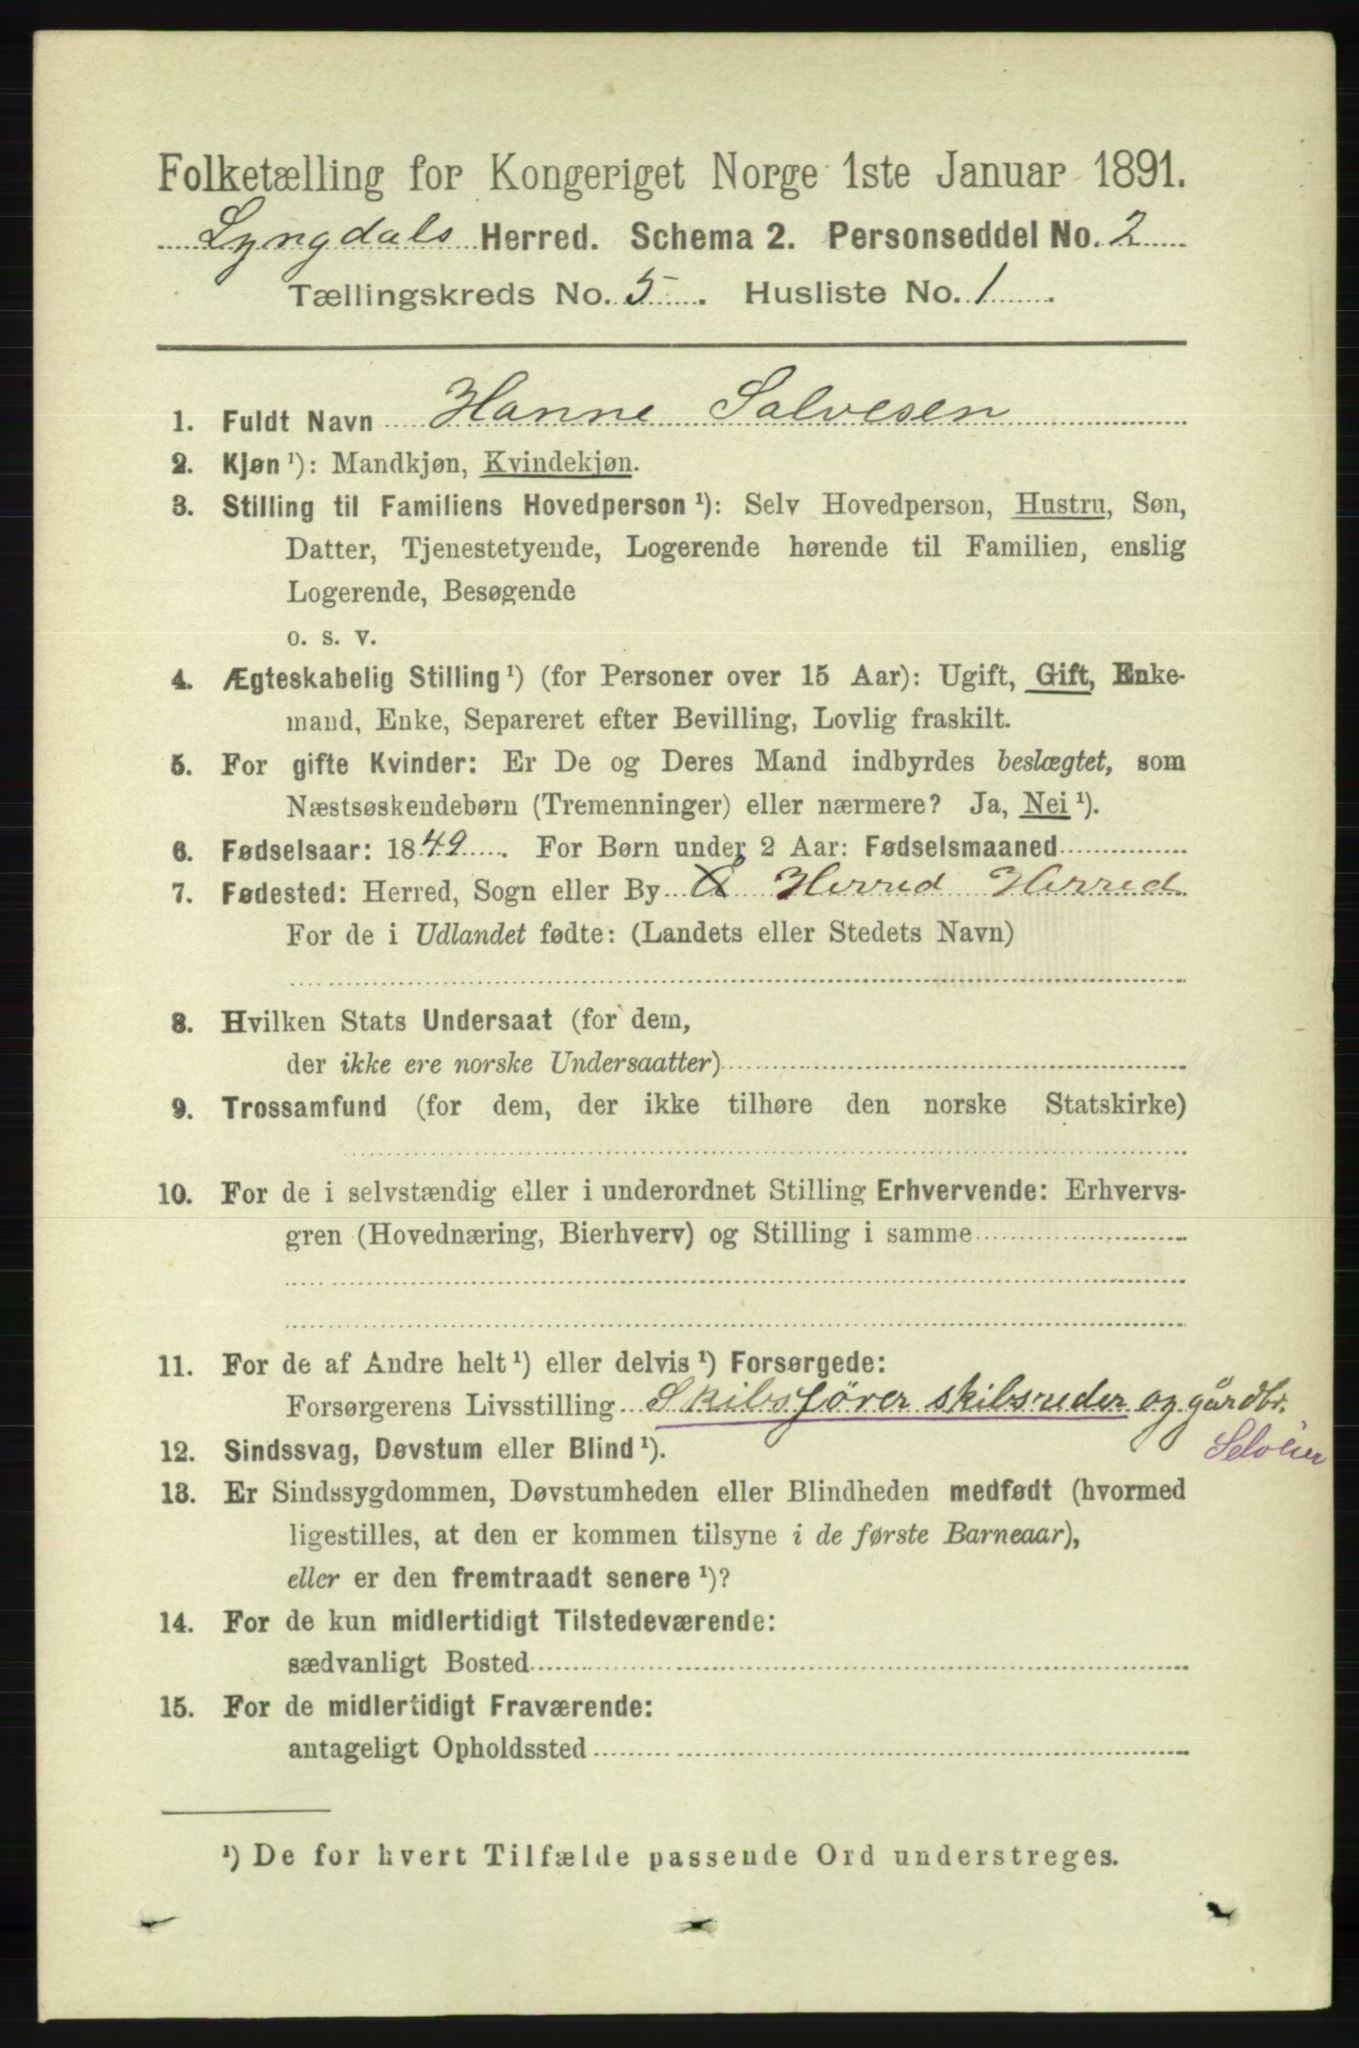 Folketælling for Kongeriget Norge 1ste Januar 1891.
Lyngdals Herred. Schema 2. Personseddel No. 2
Tællingskreds No. 5. Husliste No. 1.
1. Fuldt Navn Hanne Salvesen
2. Kjøn ¹): Mandkjøn, Kvindekjøn.
3. Stilling til Familiens Hovedperson ¹): Selv Hovedperson, Hustru, Søn,
Datter, Tjenestetyende, Logerende hørende til Familien, enslig
Logerende, Besøgende
o. s. v.
4. Ægteskabelig Stilling ¹) (for Personer over 15 Aar): Ugift, Gift, Enke-
mand, Enke, Separeret efter Bevilling, Lovlig fraskilt.
5. For gifte Kvinder: Er De og Deres Mand indbyrdes beslægtet, som
Næstsøskendebørn (Tremenninger) eller nærmere? Ja, Nei ¹).
6. Fødselsaar: 1849. For Børn under 2 Aar: Fødselsmaaned
7. Fødested: Herred, Sogn eller By Herred Herred
For de i Udlandet fødte: (Landets eller Stedets Navn)
8. Hvilken Stats Undersaat (for dem,
der ikke ere norske Undersaatter)
9. Trossamfund (for dem, der ikke tilhøre den norske Statskirke)
10. For de i selvstændig eller i underordnet Stilling Erhvervende: Erhvervs-
gren (Hovednæring, Bierhverv) og Stilling i samme
11. For de af Andre helt ¹) eller delvis ¹) Forsørgede:
Forsørgerens Livsstilling Skibsfører skibsreder og gårdbr.
Seloeier
12. Sindssvag, Døvstum eller Blind ¹).
13. Er Sindssygdommen, Døvstumheden eller Blindheden medfødt (hvormed
ligestilles, at den er kommen tilsyne i de første Barneaar),
eller er den fremtraadt senere ¹)?
14. For de kun midlertidigt Tilstedeværende:
sædvanligt Bosted
15. For de midlertidigt Fraværende:
antageligt Opholdssted
¹) De for hvert Tilfælde passende Ord understreges.